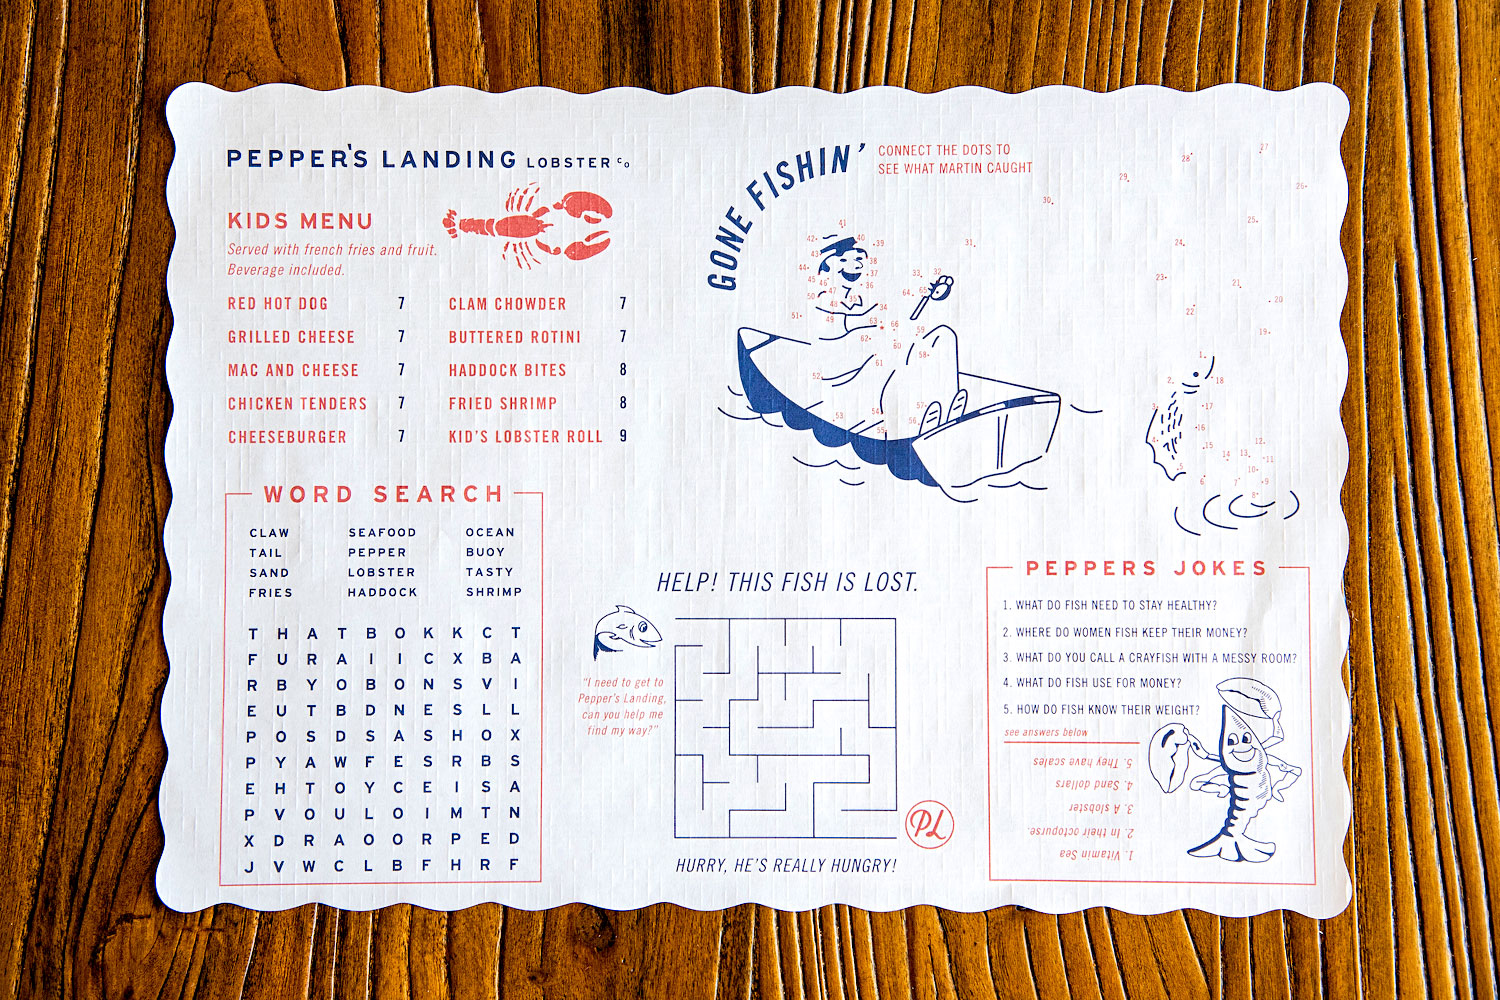 PEPPER'S LANDING LOBSTER Co
KIDS MENU
Served with french fries and fruit.
Beverage included.
RED HOT DOG 7
GRILLED CHEESE 7
MAC AND CHEESE 7
CHICKEN TENDERS 7
CHEESEBURGER 7
CLAM CHOWDER 7
BUTTERED ROTINI 7
HADDOCK BITES 8
FRIED SHRIMP 8
KID'S LOBSTER ROLL 9
GONE FISHIN'
CONNECT THE DOTS TO
SEE WHAT MARTIN CAUGHT
WORD SEARCH
CLAW SEAFOOD OCEAN
TAIL PEPPER BUOY
SAND LOBSTER TASTY
FRIES HADDOCK SHRIMP
T H A T B O K K C T
F U R A I I C X B A
R B Y O B O N S V I
E U T B D N E S L L
P O S D S A S H O X
P Y A W F E S R B S
E H T O Y C E I S A
P V O U L O I M T N
X D R A O O R P E D
J V W C L B F H R F
HELP! THIS FISH IS LOST.
"I need to get to
Pepper's Landing,
can you help me
find my way?"
PL
HURRY, HE'S REALLY HUNGRY!
PEPPERS JOKES
1. WHAT DO FISH NEED TO STAY HEALTHY?
2. WHERE DO WOMEN FISH KEEP THEIR MONEY?
3. WHAT DO YOU CALL A CRAYFISH WITH A MESSY ROOM?
4. WHAT DO FISH USE FOR MONEY?
5. HOW DO FISH KNOW THEIR WEIGHT?
see answers below
1. Vitamin Sea
2. In their octopurse.
3. A slobster
4. Sand dollars
5. They have scales